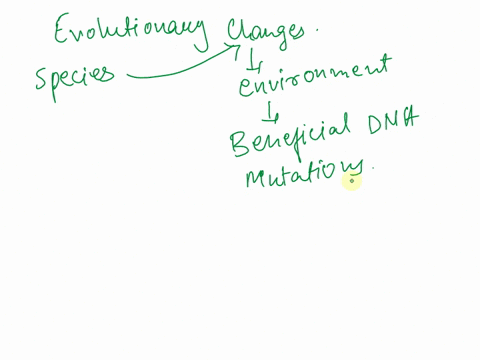 Evolutionary Changes.
Species
environment
Beneficial DNA
Mutations.